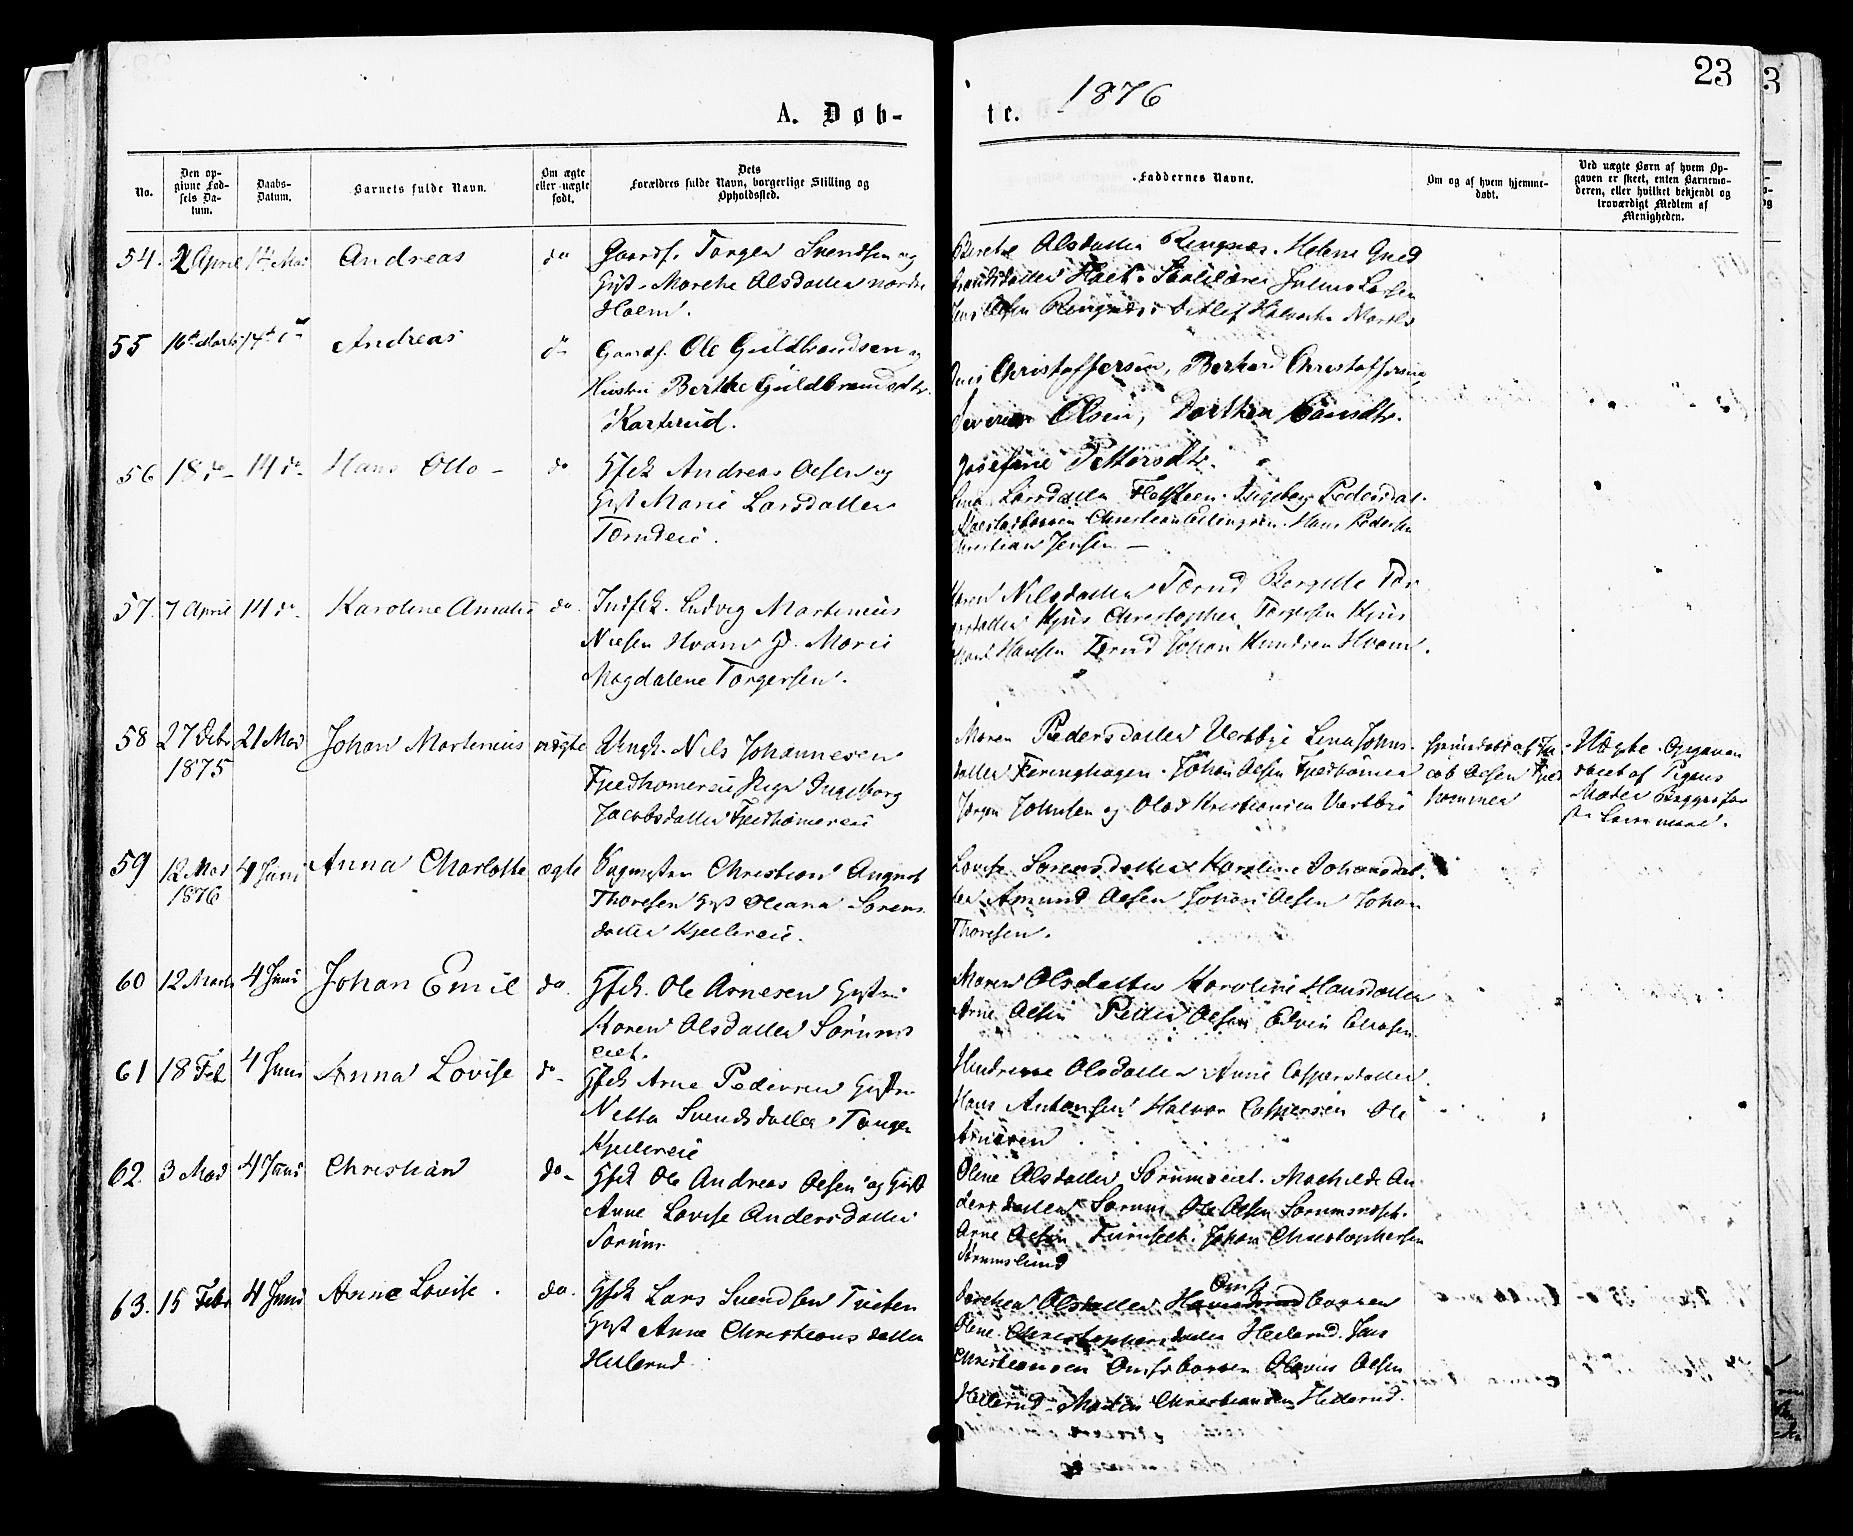 23
1876
A. Døb-
te.
No.
Den op-
givne Fød-
sels Da-
tum.
Daabs-
Datum.
Barnets fulde Navn.
Om ægte
eller uægte
født.
Dets
Forældres fulde Navn, borgerlige Stilling og
Opholdssted.
Faddernes Navne.
Om og af hvem hjemme-
døbt.
Ved uægte Børn af hvem Op-
gaven er skeet, enten Barnemo-
deren, eller hvilket bekjendt og
troværdigt Medlem af
Menigheden.
54. 2 April 14 Mai Andreas do
Gaardf. Torger Svendsen og
Gift. Marthe Olsdatter nordre
Holm.
Berthe Olsdatter Ringnæs. Helene Guld
brandsdatter Julius Larsen
Olsen Ringnæs Detlef
55 16 Marts 14 do Andreas do
Gaardf. Ole Guldbrandsen og
Hustru Berthe Guldbrandsdtr.
Karterud.
Christoffersen, Berhard Christoffersen,
Severin Olsen, Dorthea
Josefine Pettersdtr.
56 18 do 14 do Hans Otto do
Gfsk Andreas Olsen og
Gift Marie Larsdatter
Larsdatter Ingeborg Pedersdat.
Christian Ellingsen. Hans Pedersen
Christian Jensen
57. 7 April 14 do Karoline Amalie do.
Indfsk. Ludvig Martinius
Nielsen Hvam G. Marie
Magdalene Torgersen.
Karen Nilsdatter Tærud Bergitte Tor
gersdatter Kjus Christopher Torgersen Kjus
Hansen Tærud Johan Knudsen Hvam.
58 27 Debr 21 Mai Johan Martinius uægte
1875
Ungk. Nils Johannesen
Fjeldhomereie Pige Ingeborg
Jacobsdatter Fjeldhomereie
Maren Pedersdatter Vestbye Lina Johns
datter Feringhagen. Johan Olsen Fjeldhomer
Jørgen Johnsen og Olaf Kristiansen Vestbye
hjemmedøbt af Ja
cob Olsen Fjeld
hommer
Uægte. Opgaven
skeet af Pigens
Moder
59 12 Mai 4 Juni Anna Charlotte ægte
1876
Christian August
Thoresen Gift Oleana Sørens
datter Kjellereie.
Lovise Sørensdatter Karoline Johansdat
ter Amund Olsen Johan Olsen Johan
Thoresen.
60 12 Marts 4 Juni Johan Emil do.
Gfsk. Ole Arnesen Gift
Karen Olsdatter Sørums
eiet.
Maren Olsdatter Karoline Hansdatter
Arne Olsen Petter Olsen Edvin Olsen
61 18 Feb 4 Juni Anna Lovise do
Gfsk Arne Pedersen Gift
Netta Svendsdatter Tangen
Kjellereie
Hindrine Olsdatter Anne Caspersdatter.
Hans Antonsen Halvor Caspersen Ole
Arnesen
62. 3 Mai 4 Juni Christian do
Gfsk Ole Andreas Olsen og Gift
Anne Lovise Andersdatter
Sørum
Oline Olsdatter Sørumseiet. Mathilde An
dersdatter Sørum Ole Olsen Sørumseiet.
Arne Olsen Furuseth. Johan Christophersen
Sørumslund
63. 15 Febr 4 Juni Anne Lovise. do.
Gfsk Lars Svendsen Tveten
Gift Anne Christians datter
Hellerud
Dorthea Olsdatter
Oline Christophersdatter Hellerud. Jens
Christiansen Olavus Olsen
Hellerud. Martin Christiansen Hellerud.